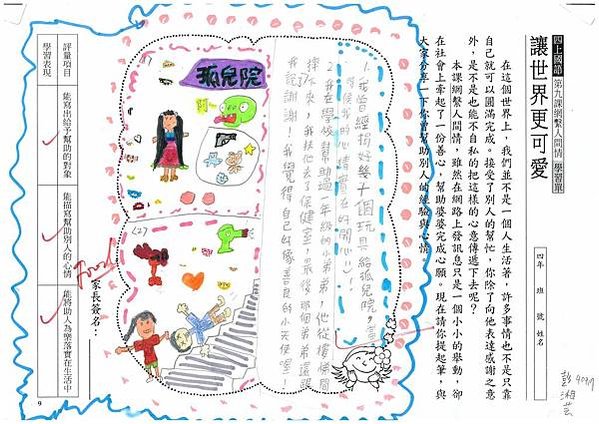 四上國語 第九課網繫人間情 學習單
讓世界更可愛
四年 班 號 姓名
在這個世界上，我們並不是一個人生活著，許多事情也不是只靠
自己就可以圓滿完成。接受了別人的幫忙，你除了向他表達感謝之意
外，是不是也能不自私的把這樣的心意傳遞下去呢？
本課網繫人間情，雖然在網路上發訊息只是一個小小的舉動，卻
在社會上牽起了一份善心，幫助婆婆完成心願。現在請你提起筆，與
大家分享一下你曾幫助別人的經驗與心情。
1.我曾經捐好幾十個玩具給孤兒院，當
時候我的心情
2.我在學校幫助過一年級的小弟弟，他從樓梯間
摔下來，我扶他去了保健室，最後那個弟弟還跟
我說謝謝！我覺得自己好像善良的小天使喔！
孤兒院
家長簽名：
評量項目
學習表現
能寫出給予幫助的對象
能描寫幫助別人的心情
能將助人為樂落實在生活中
9